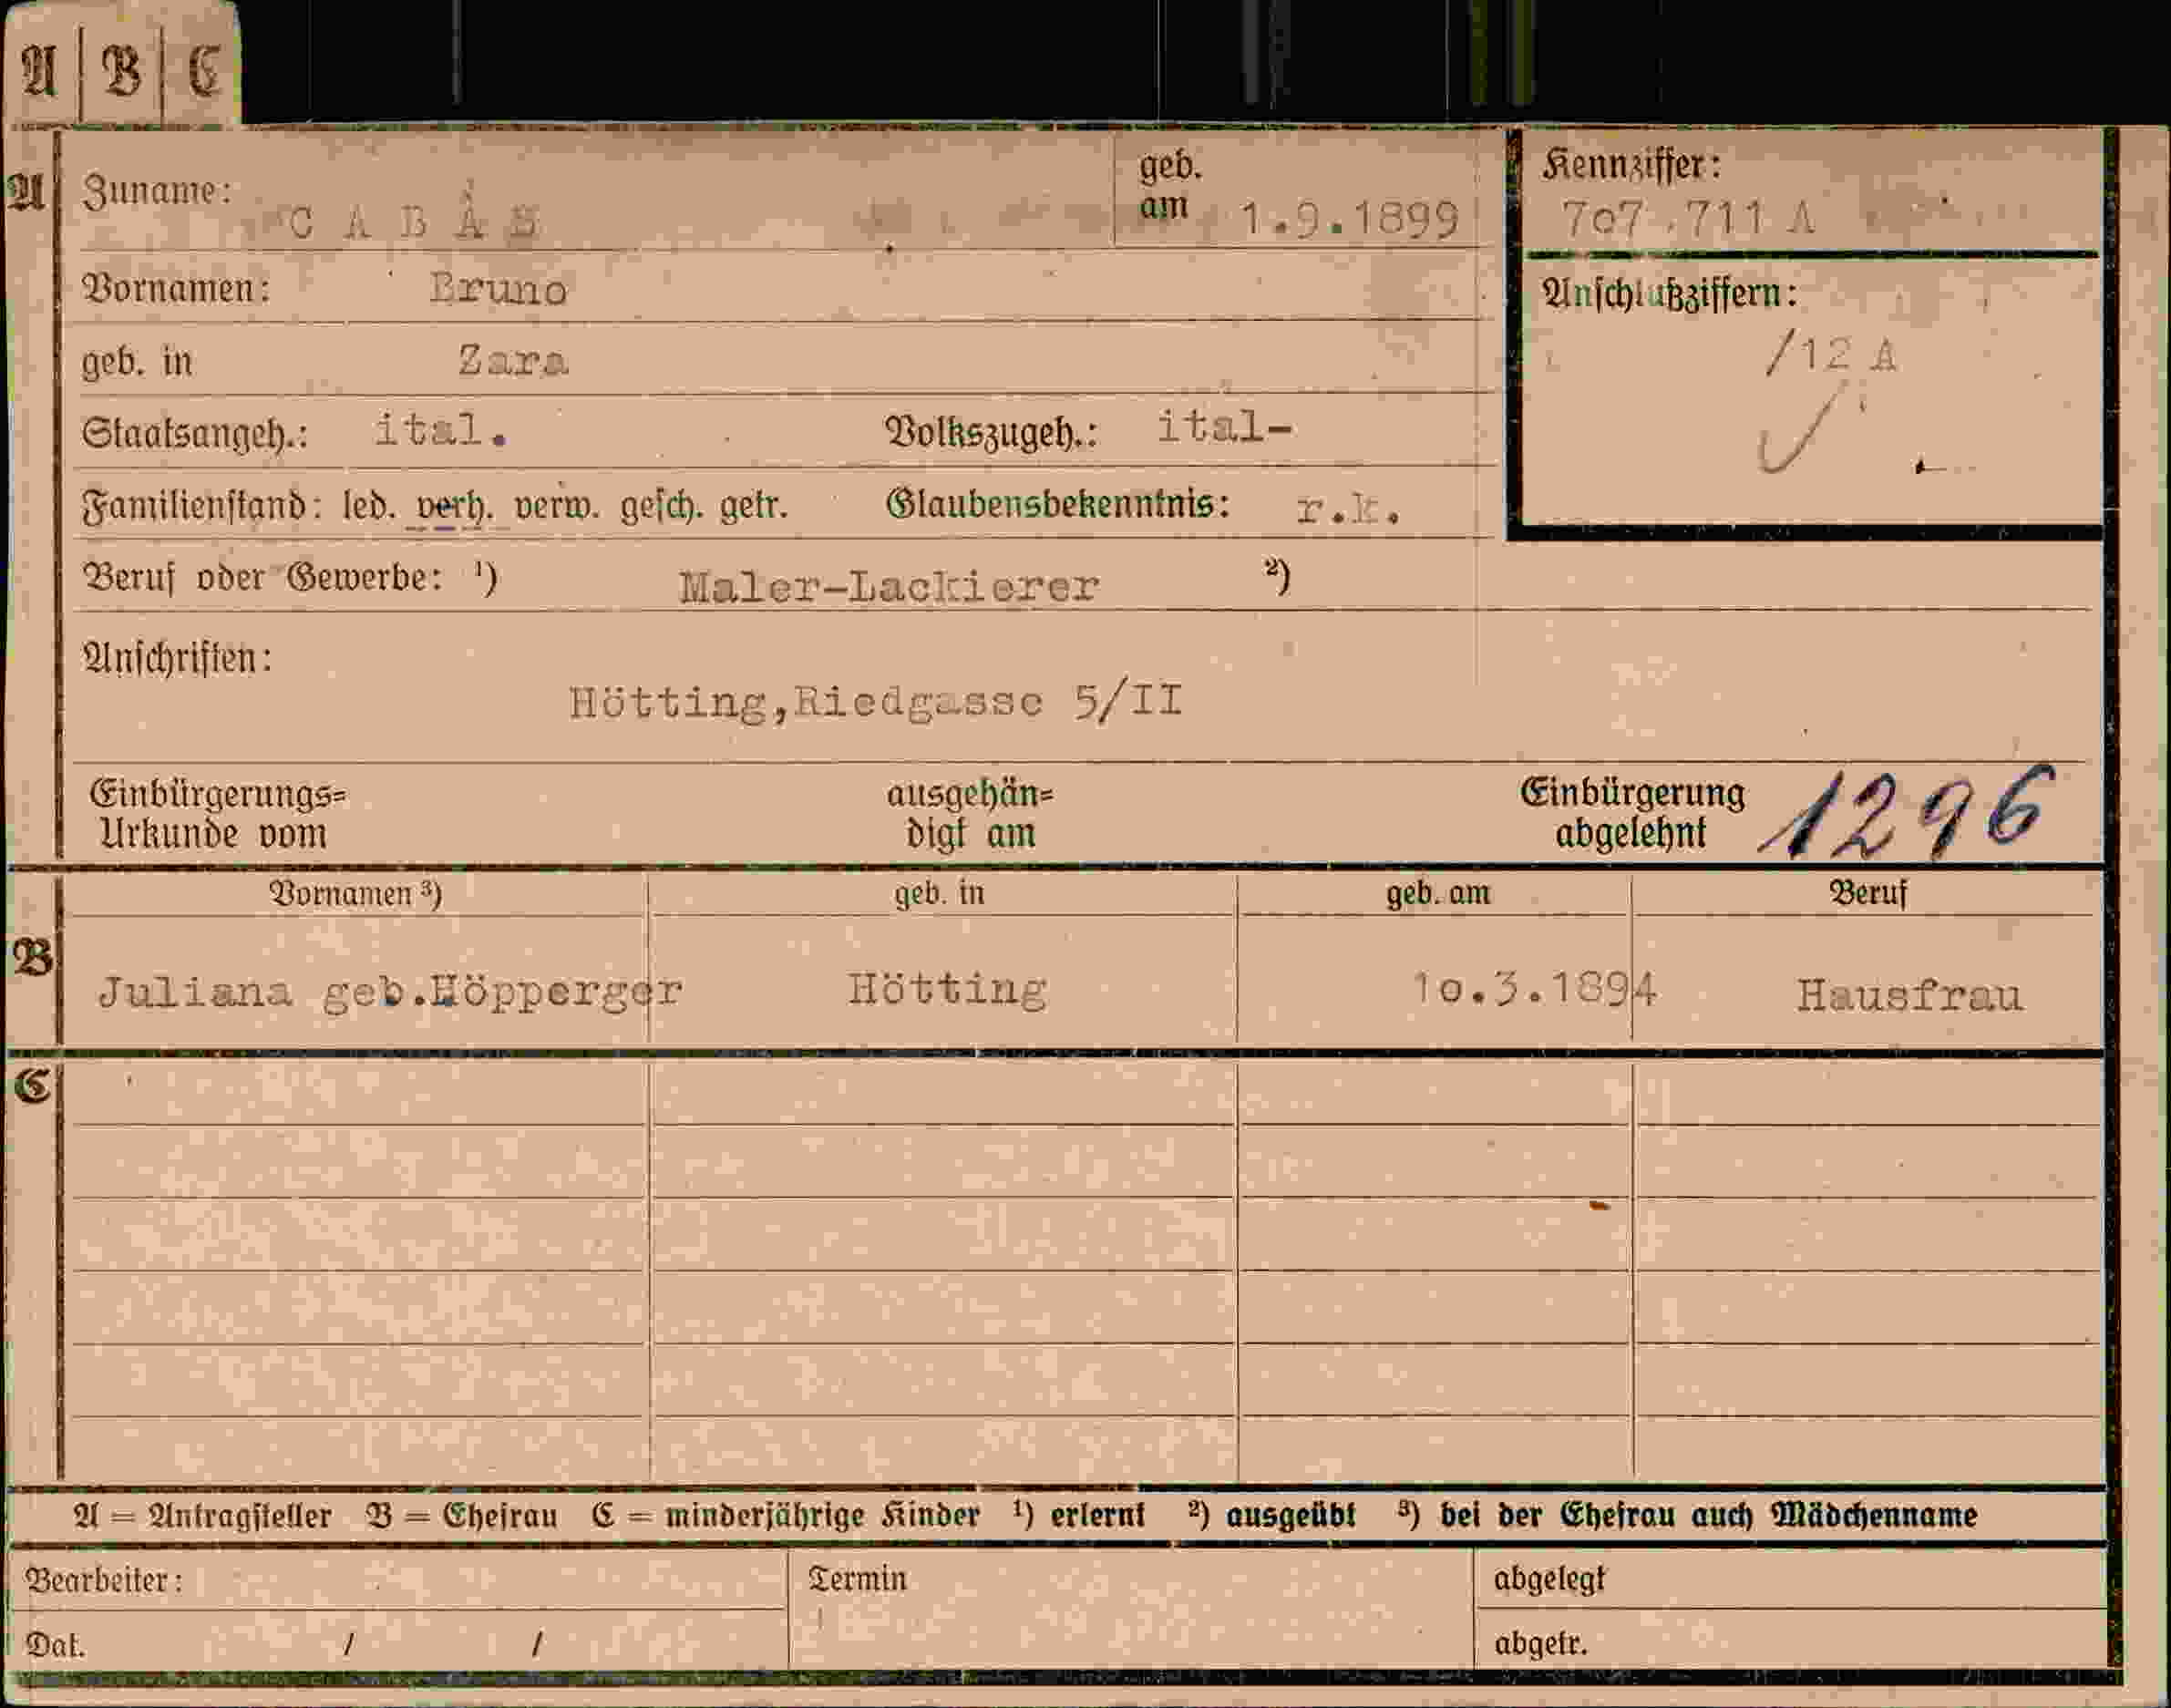 A | B | C
A
Zuname: CABÁS
geb. am 1.9.1899
Kennziffer:
707.711 A
Vornamen: Bruno
Anschlußziffern:
/12 A
geb. in Zara
Staatsangeh.: ital. Volkszugeh.: ital-
Familienstand: led. verh. verw. gesch. getr. Glaubensbekenntnis: r.k.
Beruf oder Gewerbe: ¹) Maler-Lackierer ²)
Anschriften:
Hötting,Riedgasse 5/II
Einbürgerungs= ausgehän= Einbürgerung 1296
Urkunde vom digt am abgelehnt
Vornamen ³) geb. in geb. am Beruf
B
Juliana geb.Höpperger Hötting 10.3.1894 Hausfrau
C
A = Antragsteller B = Ehefrau C = minderjährige Kinder ¹) erlernt ²) ausgeübt ³) bei der Ehefrau auch Mädchenname
Bearbeiter: Termin abgelegt
Dat. / / abgetr.